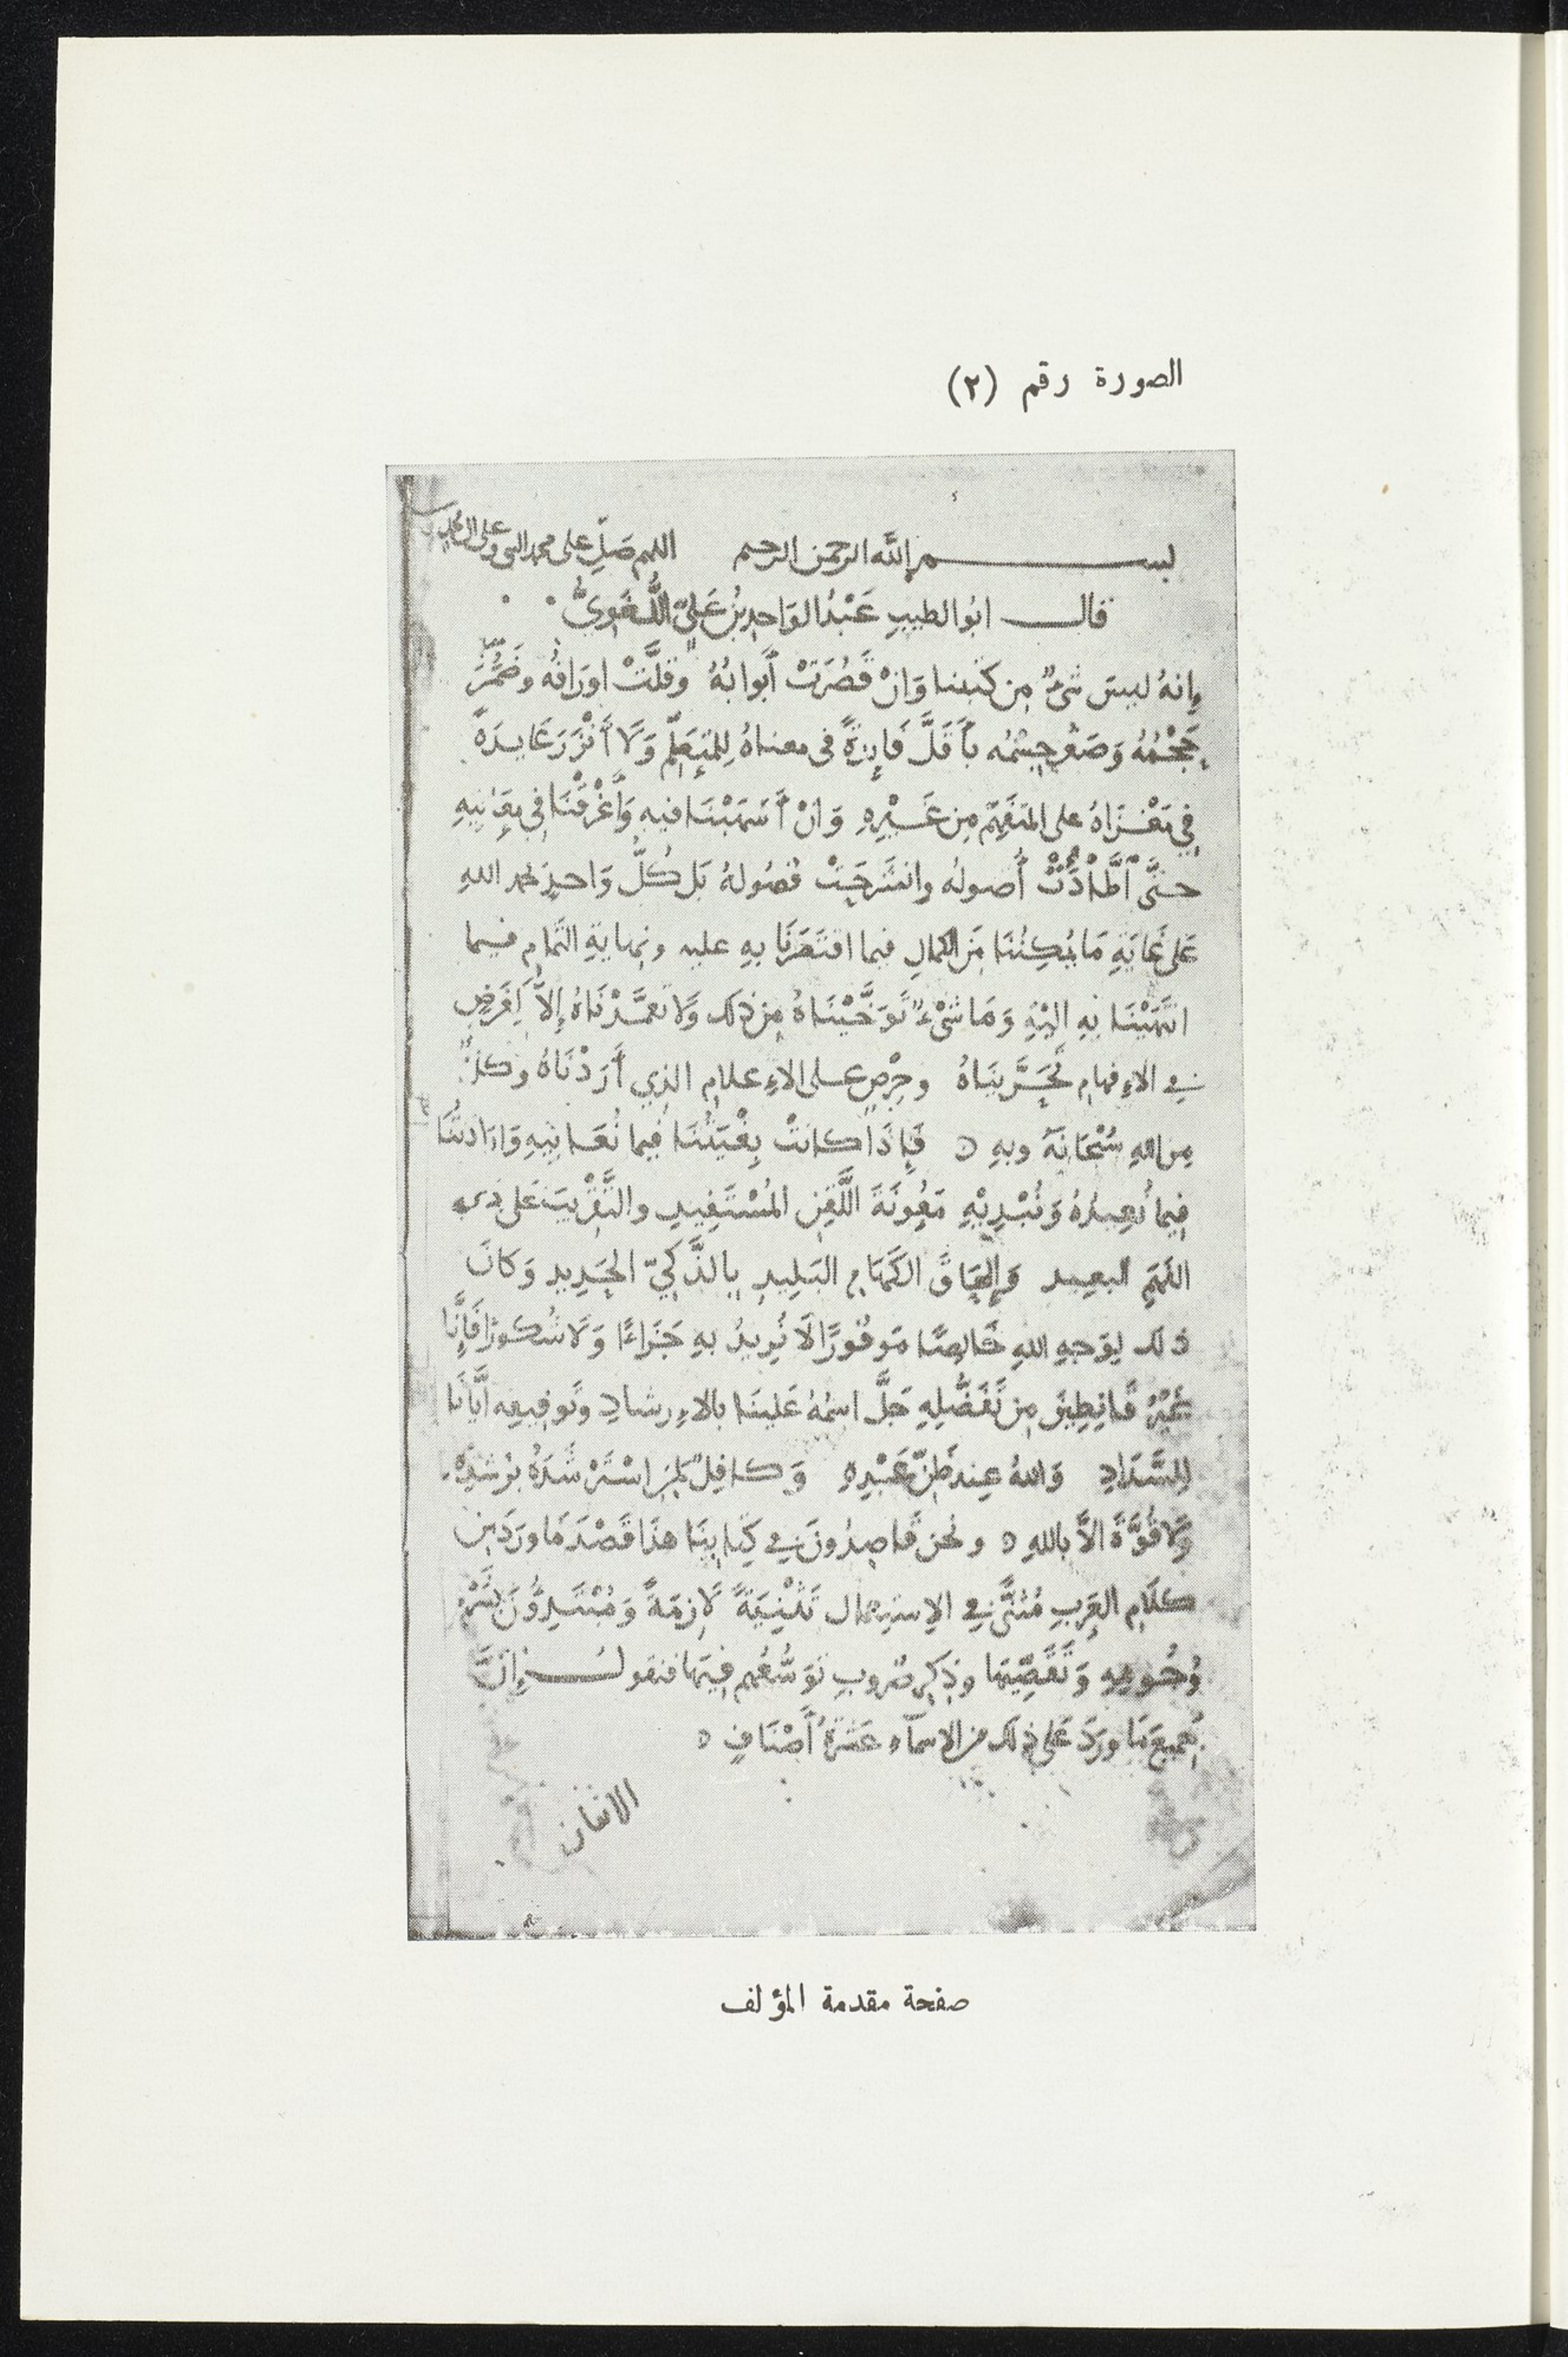 الصورة رقم (٢)
بسم الله الرحمن الرحيم اللهم صَلِّ على محمد النبى وعلى ال محمد
قال ابُو الطيبِ عَبْدُ الوَاحِدِ بْنُ عَلِيّ اللُّغَوِيُّ
إِنهُ ليسَ شىءٌ مِن كتبنا وَانْ قَصُرَتْ أَبوابُهُ وَقَلَّتْ اورَاقُه وضَمُرَ
حَجْمُهُ وَصَغُر جِسْمُه بأَقَلَّ فَايِدَةً فى معناهُ لِلمتَعَلِّمِ وَلَا أَنْزَرَ عَايِدَةً
فِي مَغْزَاهُ على المتَفَهِّمِ مِن غَيْرِهِ وَانْ أَسْهَبْنَا فيهِ وَأَغْرَقْنَا فِي مَعَانِيهِ
حتَّى اطَّأَدَتْ أُصولُه وانشَرَحَتْ فُصُولهُ بَل كُلُّ وَاحدٍ بحمد اللهِ
عَلى غَايَةِ مَا يُمكِنُنَا مِنَ الكمالِ فيما اقتَصَرْنَا بِهِ عليه ونهايةِ التَّمامِ فيما
انتَهَيْنَا بِهِ اليْهِ وَمَا شَىْءٌ تَوَخَّيْنَاهُ مِن ذلك وَلَا تعمَّدْنَاهُ إِلاَّ لِغَرَضٍ
فى الاءِفهامِ تَحَرَّيْنَاهُ وحِرْصٍ على الاءِعلامِ الذِي أَرَدْنَاهُ وكلٌّ
مِن اللهِ سُبْحَانَهُ وبهِ ٥ فَإِذَا كانتْ بِغْيَتُنَا فِيما نُعَانِيهِ وَارَادتُنَا
فِيما نُعِيدُهُ وَنُبْدِيْهِ مَعُونَةَ اللَّقِنِ المُسْتَفِيدِ والتَّقْرِيبَ عَلى ذِى
الفَهَمِ البعِيد وَإِلحَاقَ الكَهَامِ البَلِيدِ بِالذَّكِيِّ الحَدِيدِ وَكانَ
ذلك لِوَجهِ اللهِ خَالِصًا مَوفُورًا لَا نُرِيدُ بهِ جَزَاءًا وَلَا شُكورًا فَإِنَّا
غَيْرُ قَانِطِينَ مِن تَفَضُّلِهِ جَلَّ اسمُهُ عَلينَا بالاءِرشادِ وتَوفِيقِه ايَّانَا
لِلسَّدَادِ وَاللهُ عِندَ ظَنِّ عَبْدِهِ وَكافِلٌ لِمَنِ اسْتَرْشَدَهُ بِرُشْدِهْ
وَلَا قُوَّةَ الاَّ باللهِ ٥ ونحن قَاصِدُونَ فى كِتابِنَا هذَا قَصْدَ مَا وردَ مِن
كلَامِ العَرَبِ مُثنًّى فى الاِستِعمال تَثْنِيَةً لَازِمَةً وَمُبْتَدِؤُنَ بشَرْحِ
وُجُوهِهِ وَتَقَصِّيهَا وذِكرِ ضُروبِ تَوَسُّعهم فِيهَا فنقول إِنَّ
جمِيعَ مَا ورَدَ عَلى ذلك من الاسمآءِ عَشَرَةُ أَصْنَافٍ ٥
الاثنان
صفحة مقدمة المؤلف